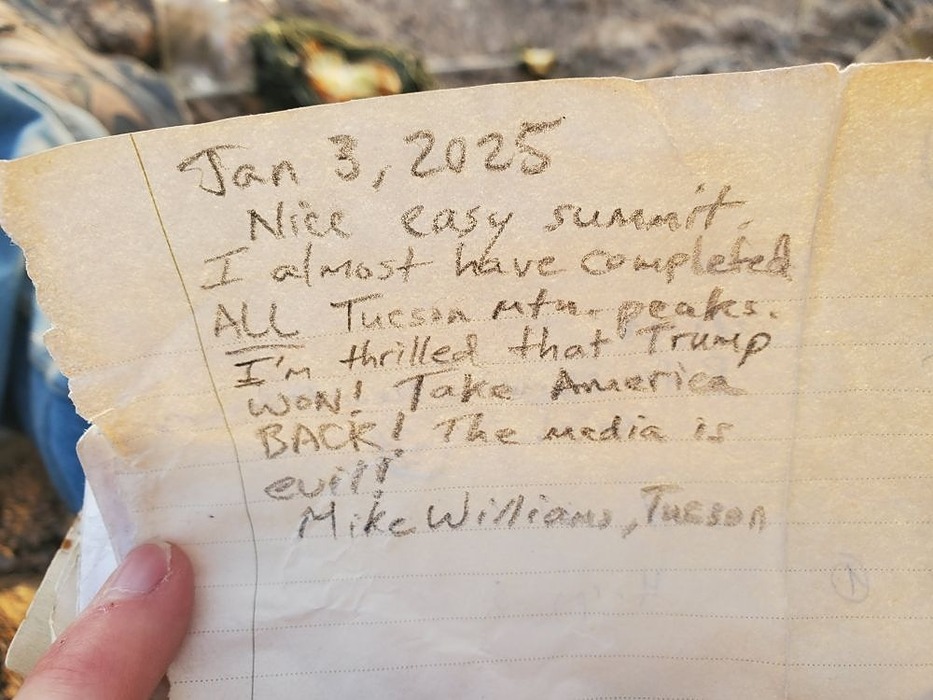 Jan 3, 2025
Nice easy summit.
I almost have completed
ALL Tucson mtn. peaks.
I'm thrilled that Trump
WON! Take America
BACK! The media is
evil!
Mike Williams, Tucson